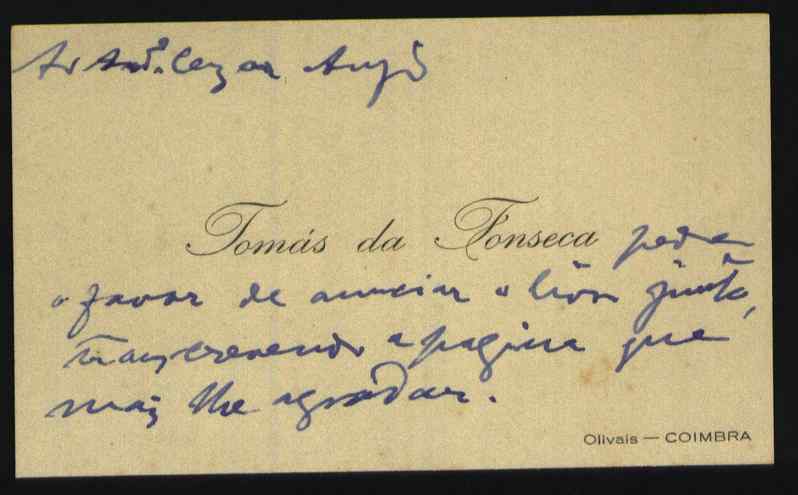 Cezar
Tomás da Fonseca pede
o favor de anunciar o livro junto,
transcrevendo a pagina que
mais lhe agradar.
Olivais — COIMBRA